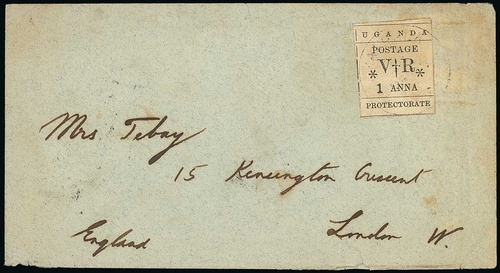 UGANDA
POSTAGE
V†R
1 ANNA
PROTECTORATE
Mrs Tebay
15 Kensington Crescent
London W.
England